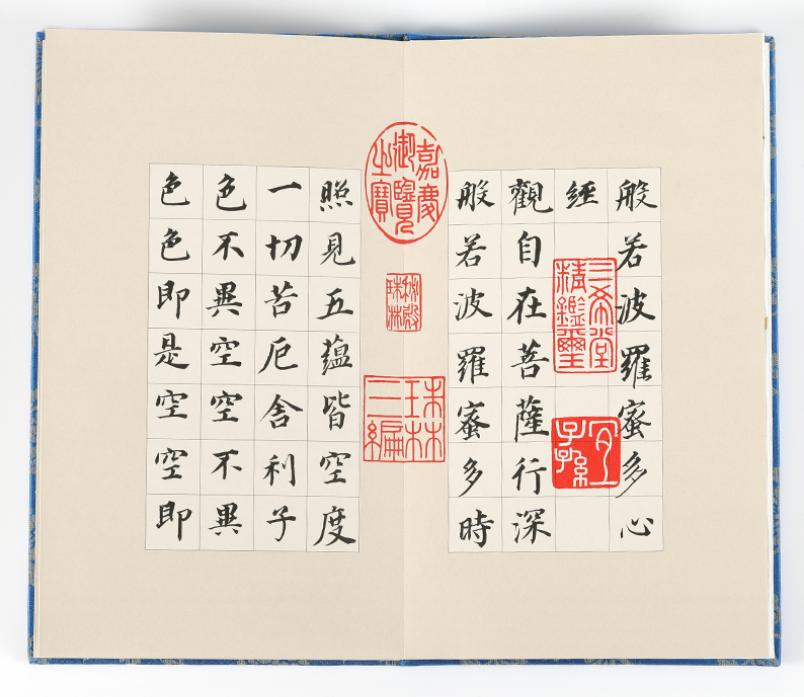 般若波羅蜜多心
經
三希堂
精鑑璽
宜
子孫
觀自在菩薩行深
般若波羅蜜多時
嘉慶
御覽
之寶
秘殿
珠林
珠林
三編
照見五蘊皆空度
一切苦厄舍利子
色不異空空不異
色色即是空空即